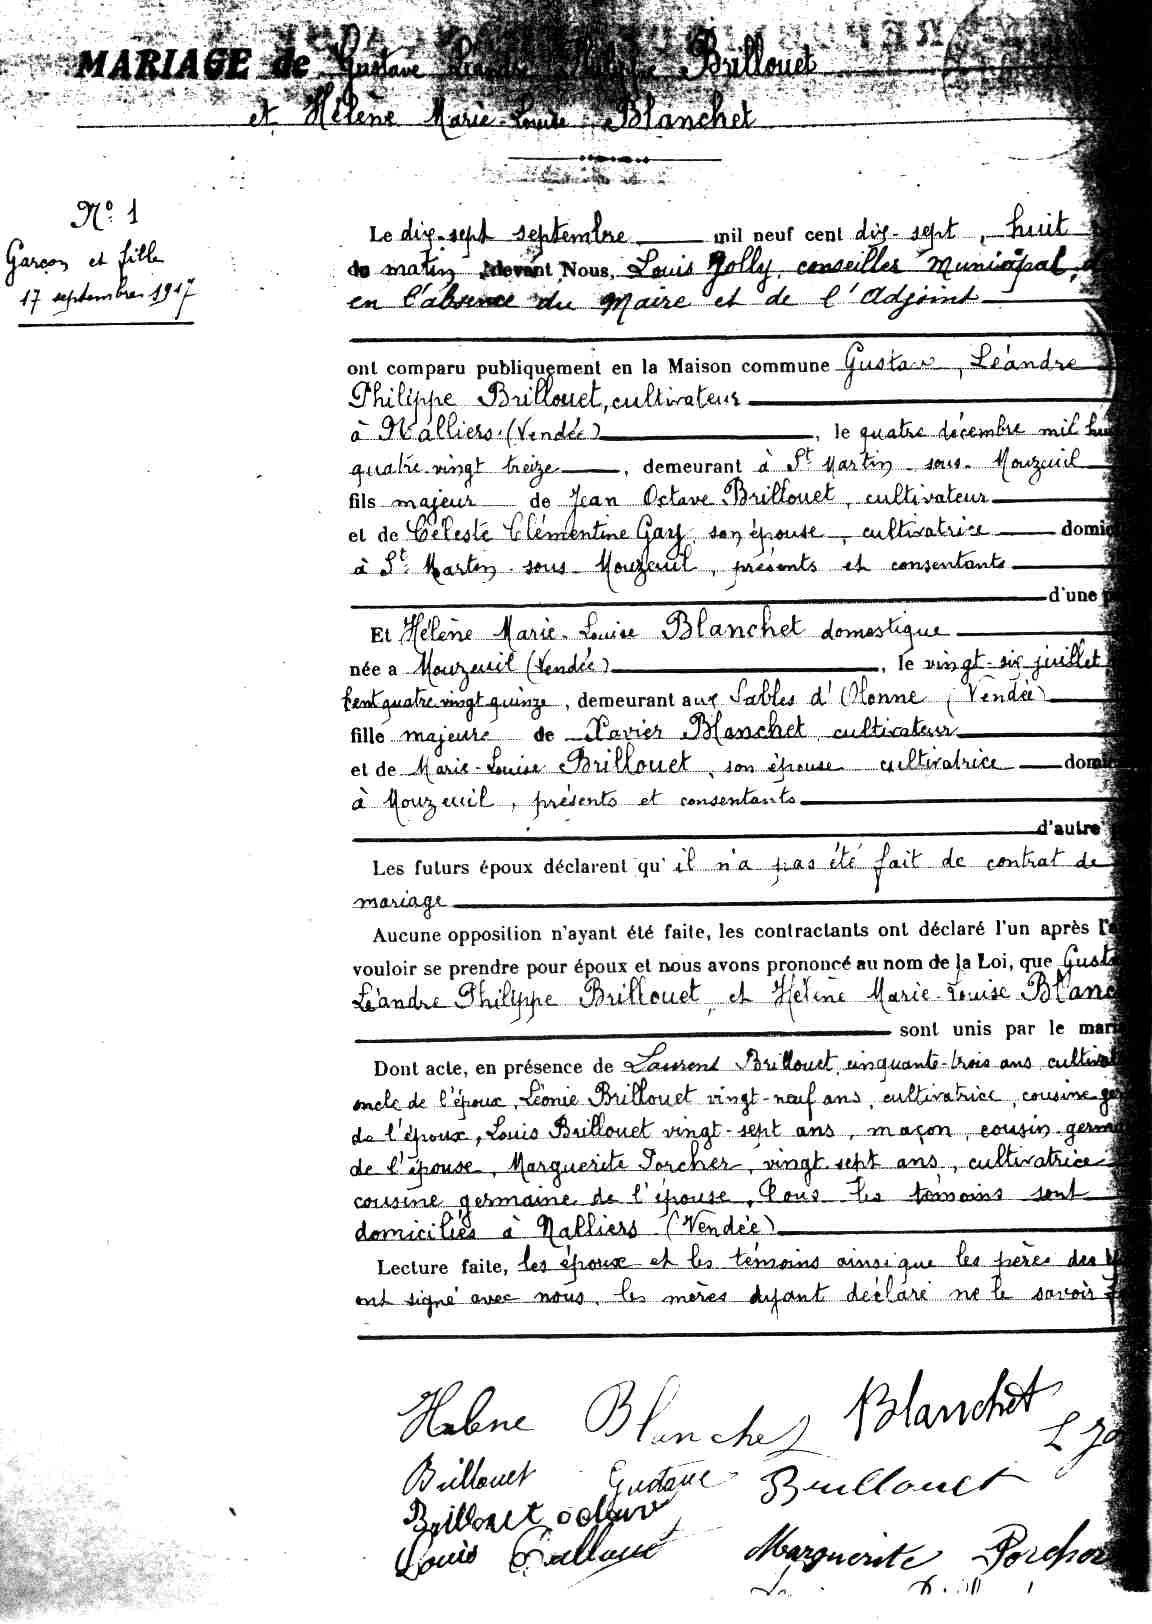 MARIAGE de Gustave Léandre Philippe Brillouet
et Hélène Marie-Louise Blanchet
N° 1
Garçon et fille
17 septembre 1917
Le dix-sept septembre mil neuf cent dix-sept, huit
du matin, devant Nous, Louis Jolly, conseiller Municipal,
en l'absence du Maire et de l'Adjoint
ont comparu publiquement en la Maison commune Gustave, Léandre
Philippe Brillouet, cultivateur
à Nalliers (Vendée), le quatre décembre mil
quatre-vingt treize, demeurant à St Martin-sous-Mouzeuil
fils majeur de Jean Octave Brillouet, cultivateur
et de Céleste Clémentine Gary, son épouse, cultivatrice
à St Martin-sous-Mouzeuil, présents et consentants
d'une
Et Hélène Marie-Louise Blanchet domestique
née a Mouzeuil (Vendée), le vingt-six juillet
cent quatre vingt quinze, demeurant aux Sables d'Olonne (Vendée)
fille majeure de Xavier Blanchet, cultivateur
et de Marie-Louise Brillouet, son épouse cultivatrice
à Mouzeuil, présents et consentants
d'autre
Les futurs époux déclarent qu'il n'a pas été fait de contrat de
mariage
Aucune opposition n'ayant été faite, les contractants ont déclaré l'un après
vouloir se prendre pour époux et nous avons prononcé au nom de la Loi, que
Léandre Philippe Brillouet, et Hélène Marie-Louise
sont unis par le
Dont acte, en présence de Laurent Brillouet, cinquante-trois ans
oncle de l'époux, Léonie Brillouet vingt-neuf ans, cultivatrice, cousine
de l'époux, Louis Brillouet vingt-sept ans, maçon, cousin
de l'épouse, Marguerite Porcher, vingt sept ans, cultivatrice
cousine germaine de l'épouse. Tous les témoins sont
domiciliés à Nalliers (Vendée)
Lecture faite, les époux et les témoins ainsi que les pères des
ont signé avec nous, les mères ayant déclaré ne le savoir
Helene Blanchet Blanchet
Brillouet Gustave Brillouet
Brillouet octave
Louis Brillouet Marguerite Porcher